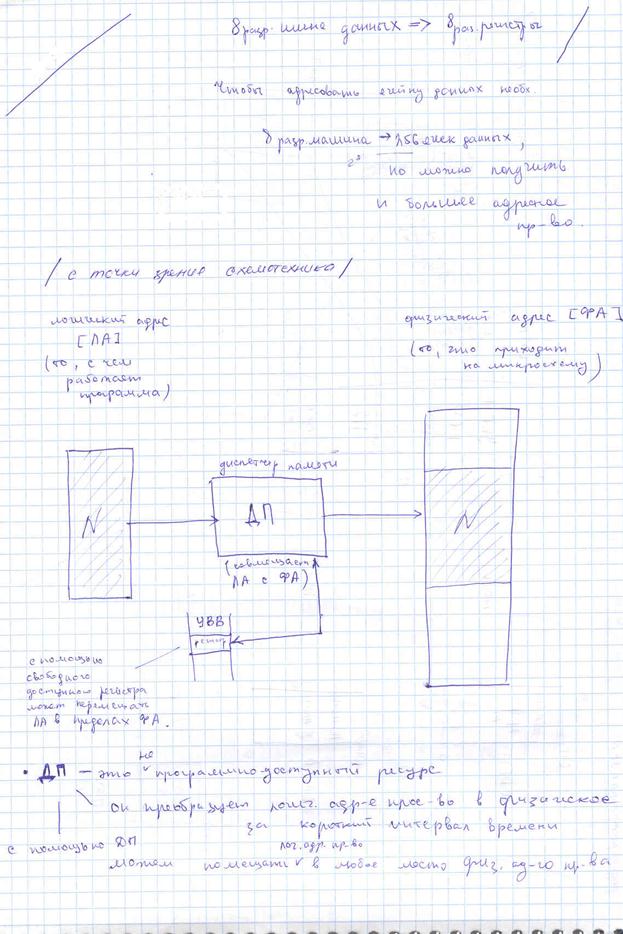 8 разр. шина данных => 8 раз. регистры
Чтобы адресовать ячейку данных необх.
8 разр. машина → 256 ячеек данных,
2⁸
но можно получить
и большее адресное
пр-во.
/ с точки зрения схемотехника /
логический адрес
[ЛА]
(то, с чем
работает
программа)
физический адрес [ФА]
(то, что приходит
на микросхему)
диспетчер памяти
N
ДП
N
(совмещает
ЛА с ФА)
УВВ
регистр
с помощью
свободного
доступного регистра
может перемещать
ЛА в пределах ФА.
• ДП – это не программно-доступный ресурс
он преобразует логич. адр-е прос-во в физическое
за короткий интервал времени
с помощью ДП
можем помещать лог. адр. пр-во в любое место физ. ад-го пр-ва